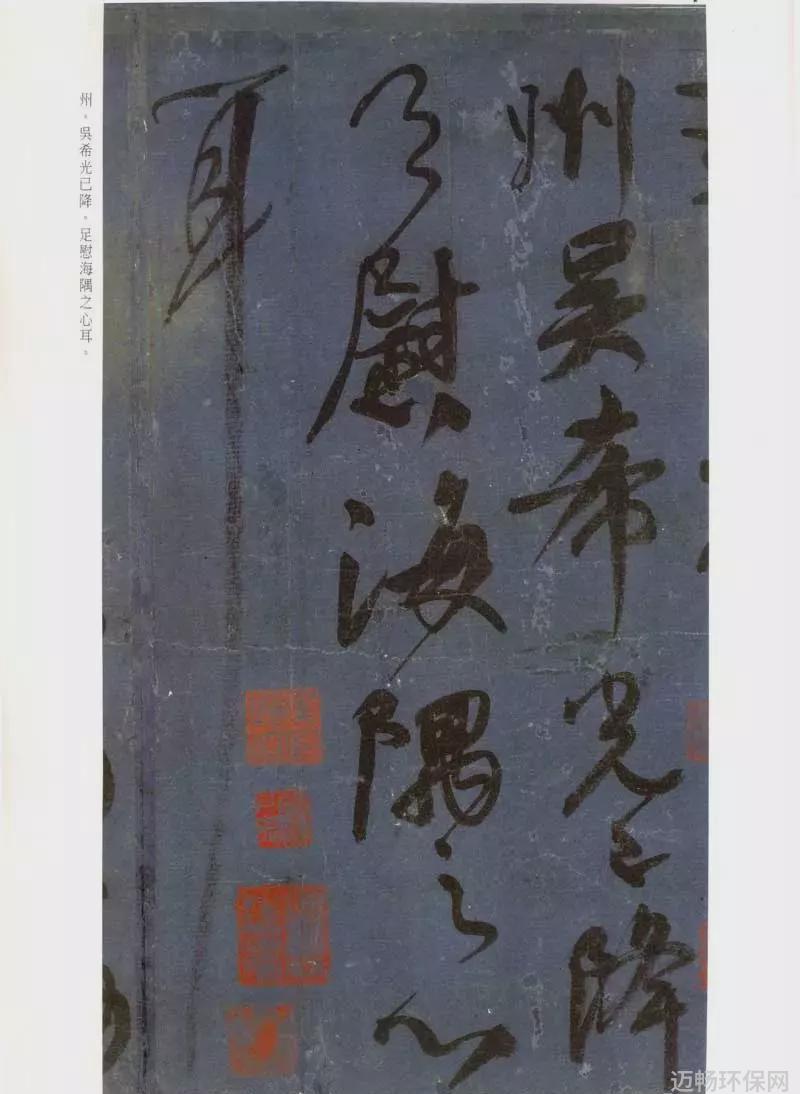 州吳希光已降
足慰海隅之心
耳
州。吳希光已降。足慰海隅之心耳。
迈畅环保网